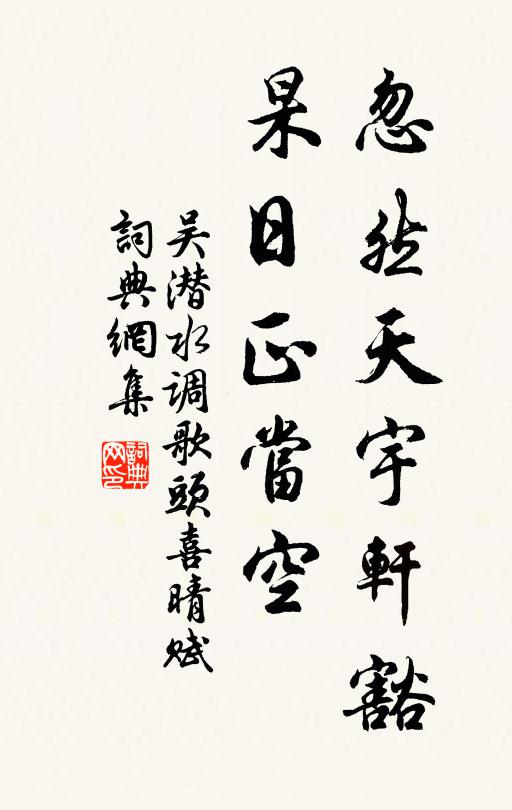 忽然天宇軒豁
杲日正當空
吴潜水调歌頭喜晴赋
詞典網集
詞典网印